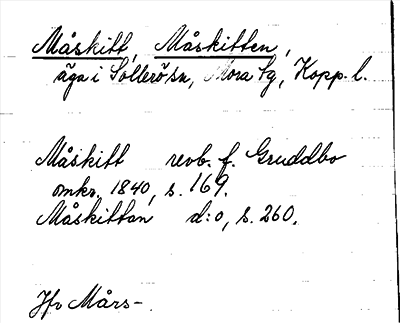 Måskitt, Måskitten,
äga i Sollerö sn, Mora tg, Kopp. l.
Måskitt revb. f. Gruddbo
omkr. 1840, s. 169.
Måskittan d:o, s. 260.
Jfr Mårs-